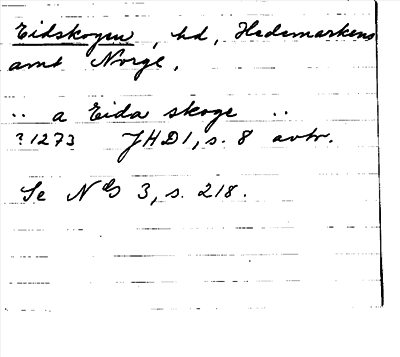 Eidskogen, hd, Hedemarkens
amt Norge.
.. a Eida skoge ..
?1273 JHD1, s. 8 avtr.
Se NG 3, s. 218.